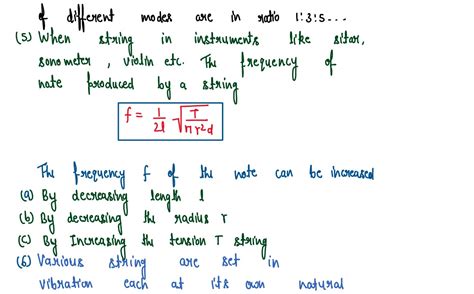 of different modes are in ratio 1:3:5...
(5) When string in instruments like sitar,
sonometer, violin etc. The frequency of
note produced by a string
f = 1/2l √T/πr²d
The frequency f of the note can be increased
(a) By decreasing length l
(b) By decreasing the radius r
(c) By Increasing the tension T string
(6) Various string are set in
vibration each at its own natural